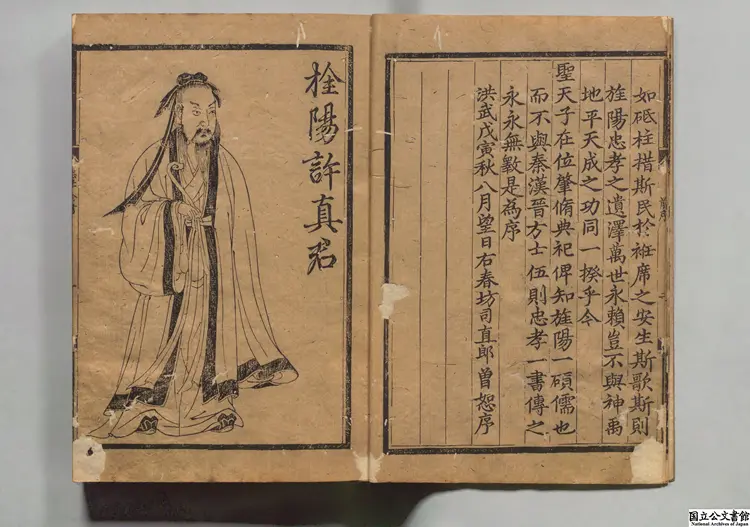 如砥柱措斯民於袵席之安生斯歌斯則
旌陽忠孝之遺澤萬世永賴豈不與神禹
地平天成之功同一揆乎今
聖天子在位肇脩典祀俾知旌陽一碩儒也
而不與秦漢晉方士伍則忠孝一書傳之
永永無數是為序
洪武戊寅秋八月望日右春坊司直郎曾恕序
旌陽許真君
国立公文書館
National Archives of Japan